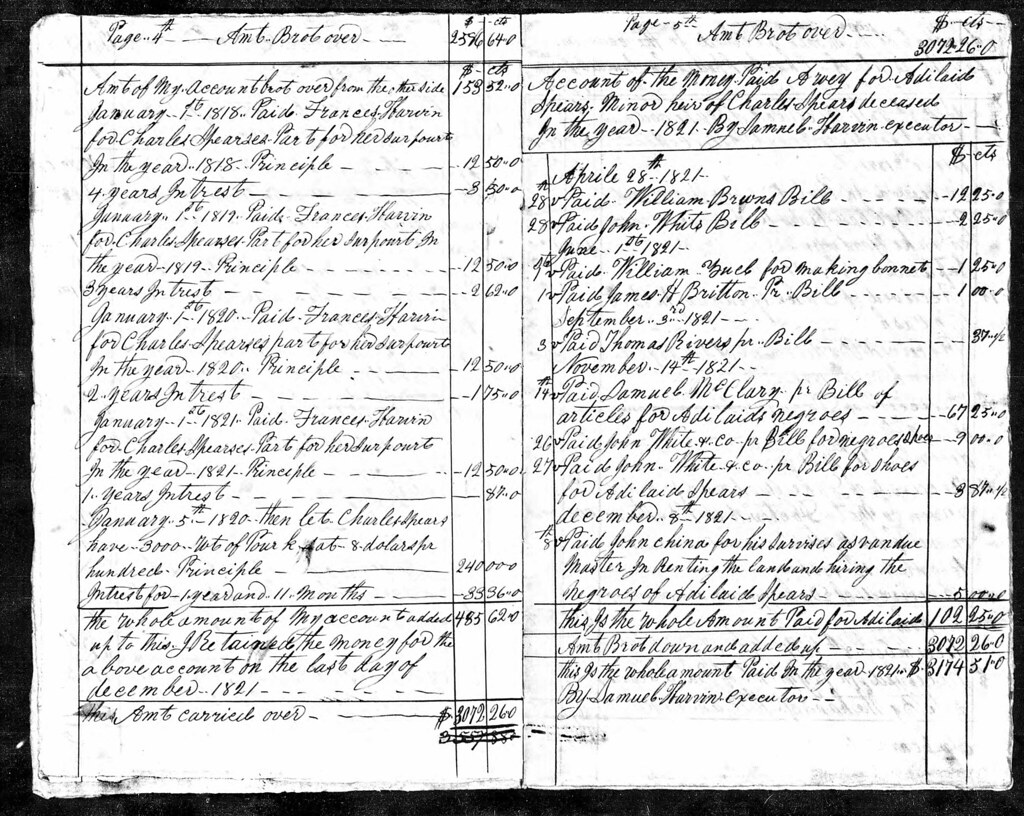 Page 4th Amt Brot over $ cts
2586 64 0
$ cts
Amt of My Account brot over from the other side 153 52 0
January 1th 1818 Paid Frances Harvin
for Charles Spearses Part for her surpourt
In the year 1818 Principle 12 50 0
4 years Intrest 3 50 0
January 1th 1819 Paid Frances Harvin
for Charles Spearses Part for her surpourt In
the year 1819 Principle 12 50 0
3 years Intrest 2 62 0
January 1th 1820 Paid Frances Harvin
for Charles Spearses part for her surpourt
In the year 1820 Principle 12 50 0
2 years Intrest 1 75 0
January 1th 1821 Paid Frances Harvin
for Charles Spearses Part for her Surpourt
In the year 1821 Principle 12 50 0
1 years Intrest 87 0
January 5th 1820 then let Charles Spears
have 3000 Wt of Pourk at 8 dolars pr
hundred Principle 240 00 0
Intrest for 1 year and 11 Months 33 36 0
the whole amount of My account added 485 62 0
up to this I Retained the Money for the
above account on the last day of
december 1821
this Amt carried over $ 3072 26 0
3557 88 0
Page 5th
Amt Brot over $ cts
3072 26 0
Account of the Money Paid Awey for Adilaid
Spears Minor heir of Charles Spears deceased
In the year 1821 By Samuel Harvin executor
$ cts
Aprile 28th 1821
28 Paid William Browns Bill 12 25 0
28 Paid John Whits Bill 2 25 0
June 1th 1821
1 Paid William Zuel for making bonnet 1 25 0
1 Paid James H Britton Pr Bill 1 00 0
September 3rd 1821
3 Paid Thomas Rivers pr Bill 37 1/2
November 14th 1821
14 Paid Samuel McClary pr Bill of
articles for Adilaids negroes 67 25 0
26 Paid John White & co pr Bill for negroes shoes 9 00 0
27 Paid John White & co pr Bill for shoes
for Adilaid Spears 3 87 1/2
december 8th 1821
8 Paid John China for his survises as vandue
Master In Renting the land and hiring the
negroes of Adilaid Spears 5 00 0
this Is the whole Amount Paid for Adilaid 102 25 0
Amt Brot down and added up 3072 26 0
this Is the whole amount Paid In the year 1821 $ 3174 51 0
By Samuel Harvin executor